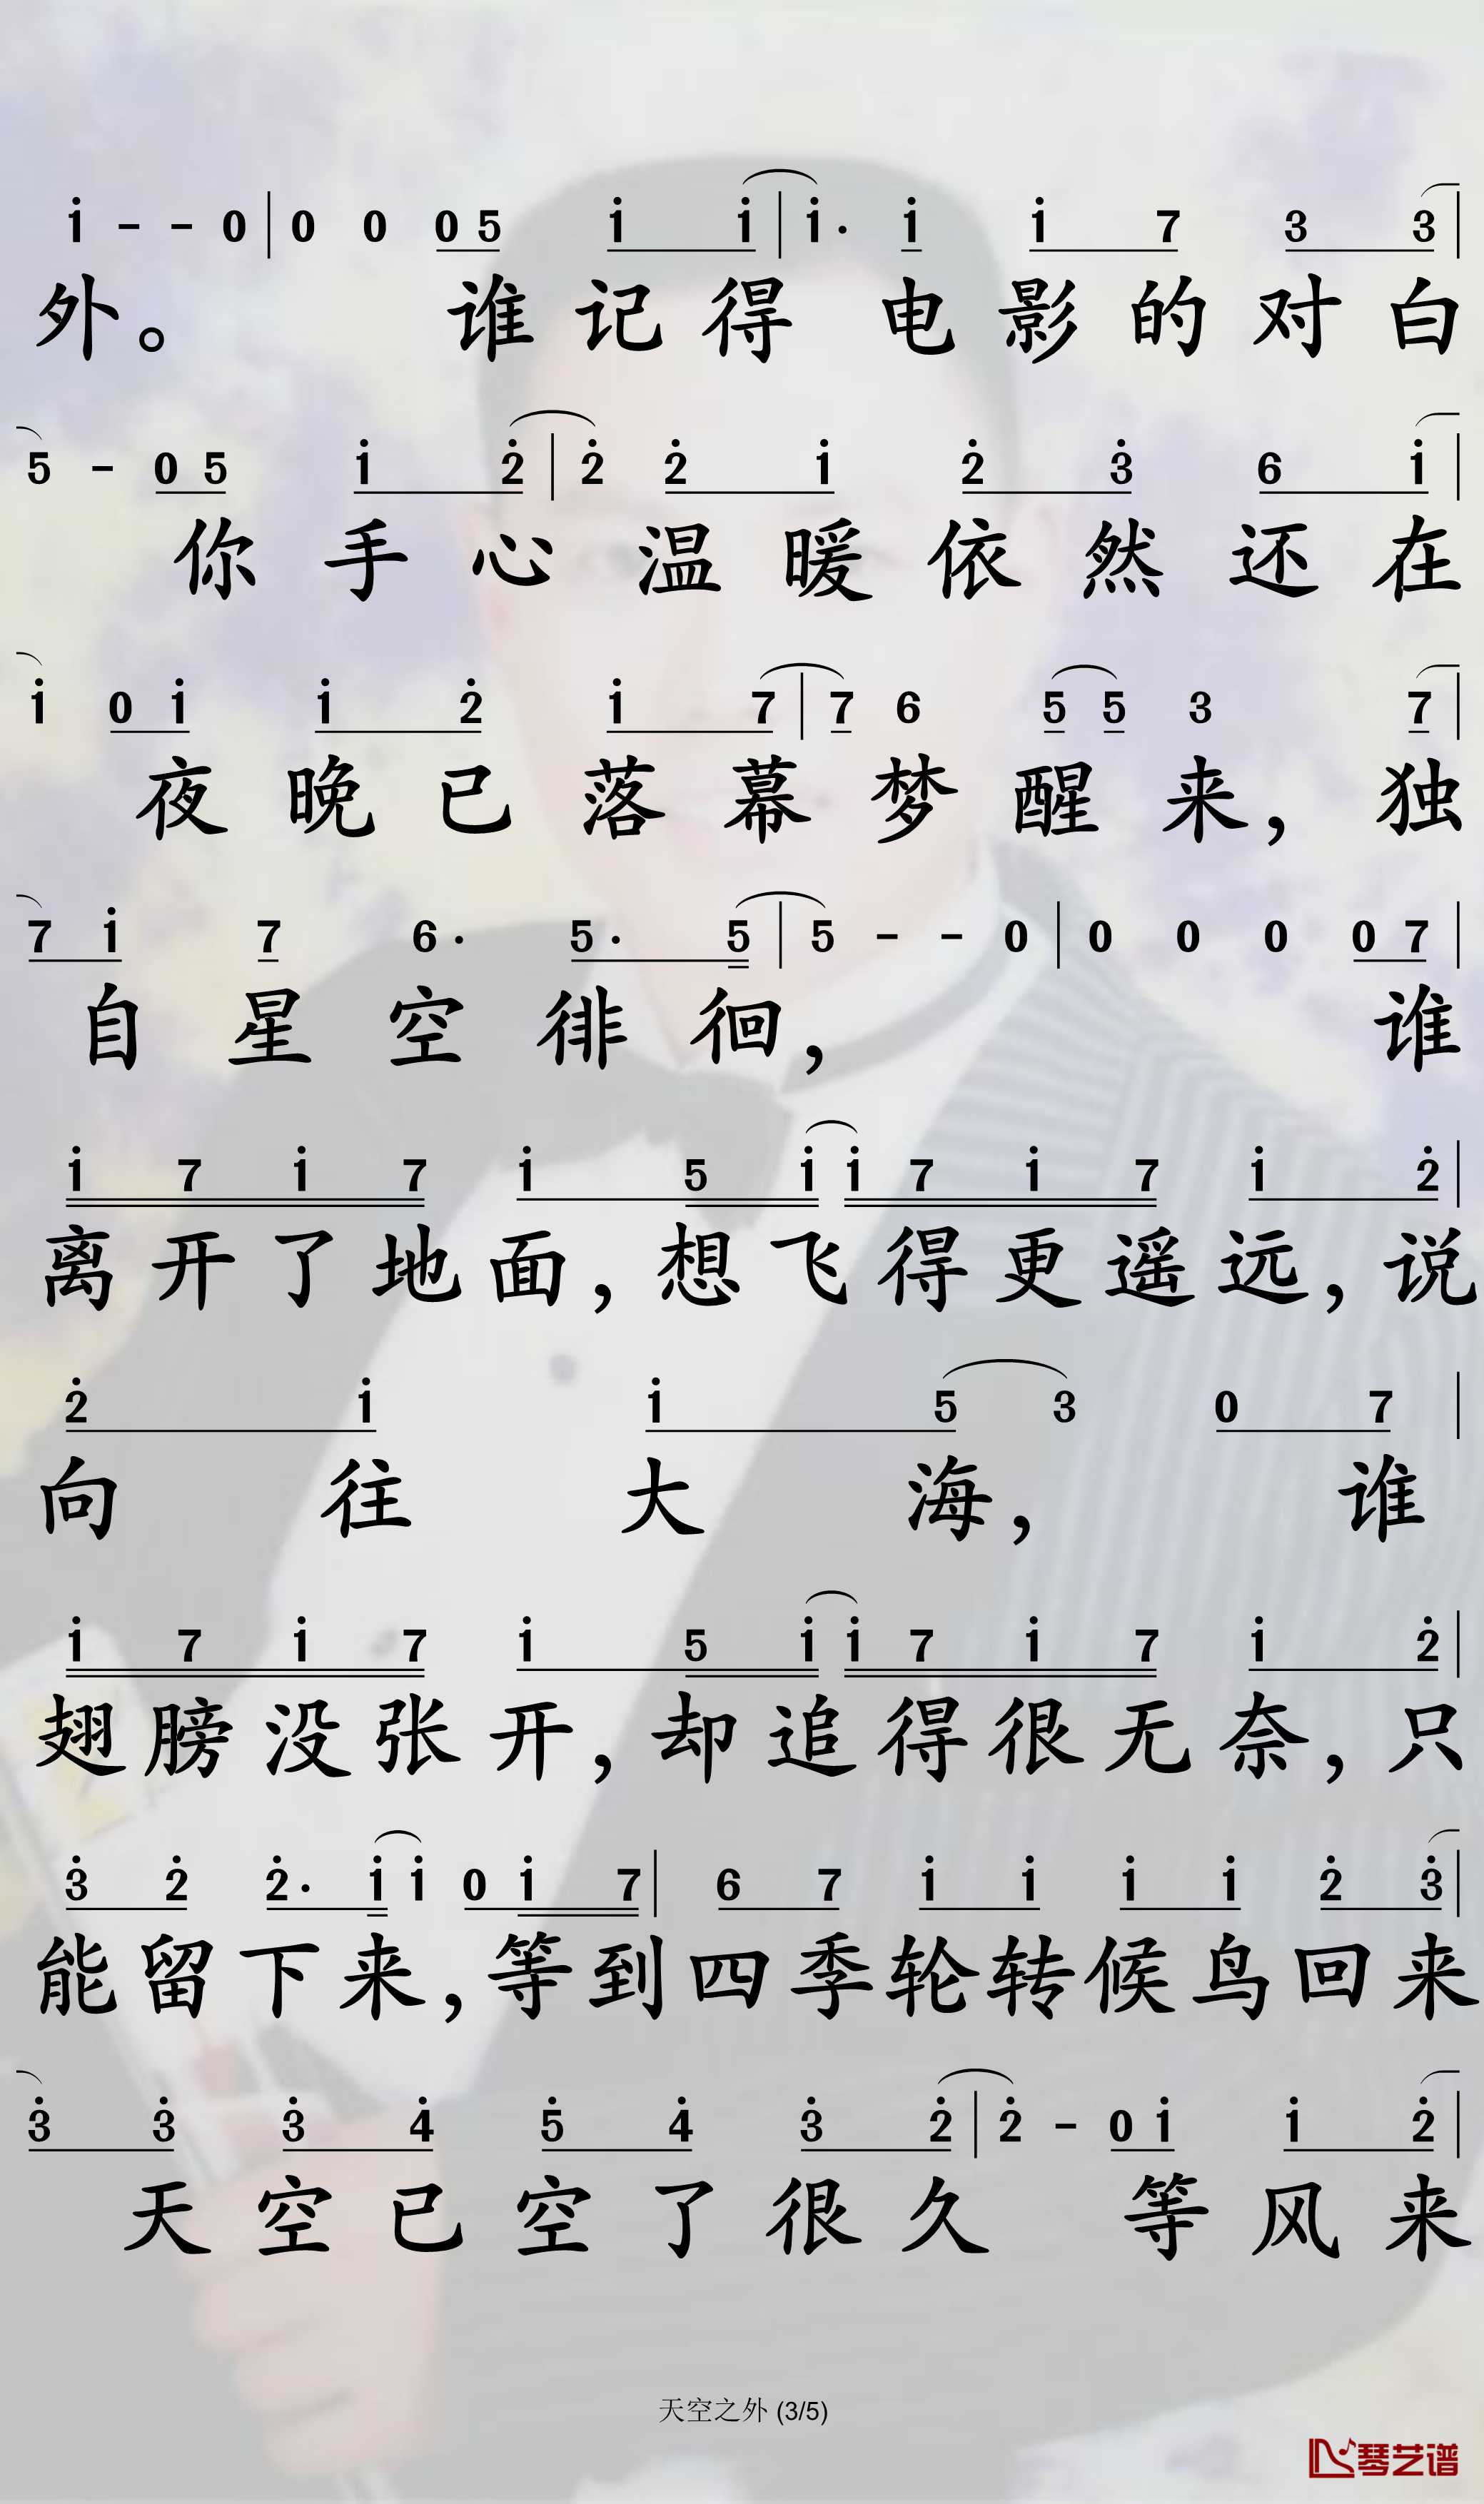 i - - 0 | 0 0 0 5 i i | i· i i 7 3 3 |
外。 谁 记 得 电 影 的 对 白
5 - 0 5 i 2 | 2 2 i 2 3 6 i |
你 手 心 温 暖 依 然 还 在
i 0 i i 2 i 7 | 7 6 5 5 3 7 |
夜 晚 已 落 幕 梦 醒 来, 独
7 i 7 6· 5· 5 | 5 - - 0 | 0 0 0 0 7 |
自 星 空 徘 徊, 谁
i 7 i 7 i 5 i i 7 i 7 i 2 |
离 开 了 地 面, 想 飞 得 更 遥 远, 说
2 i i 5 3 0 7 |
向 往 大 海, 谁
i 7 i 7 i 5 i i 7 i 7 i 2 |
翅 膀 没 张 开, 却 追 得 很 无 奈, 只
3 2 2· i i 0 i 7 | 6 7 i i i i 2 3 |
能 留 下 来, 等 到 四 季 轮 转 候 鸟 回 来
3 3 3 4 5 4 3 2 | 2 - 0 i i 2 |
天 空 已 空 了 很 久 等 风 来
天空之外 (3/5)
琴艺谱